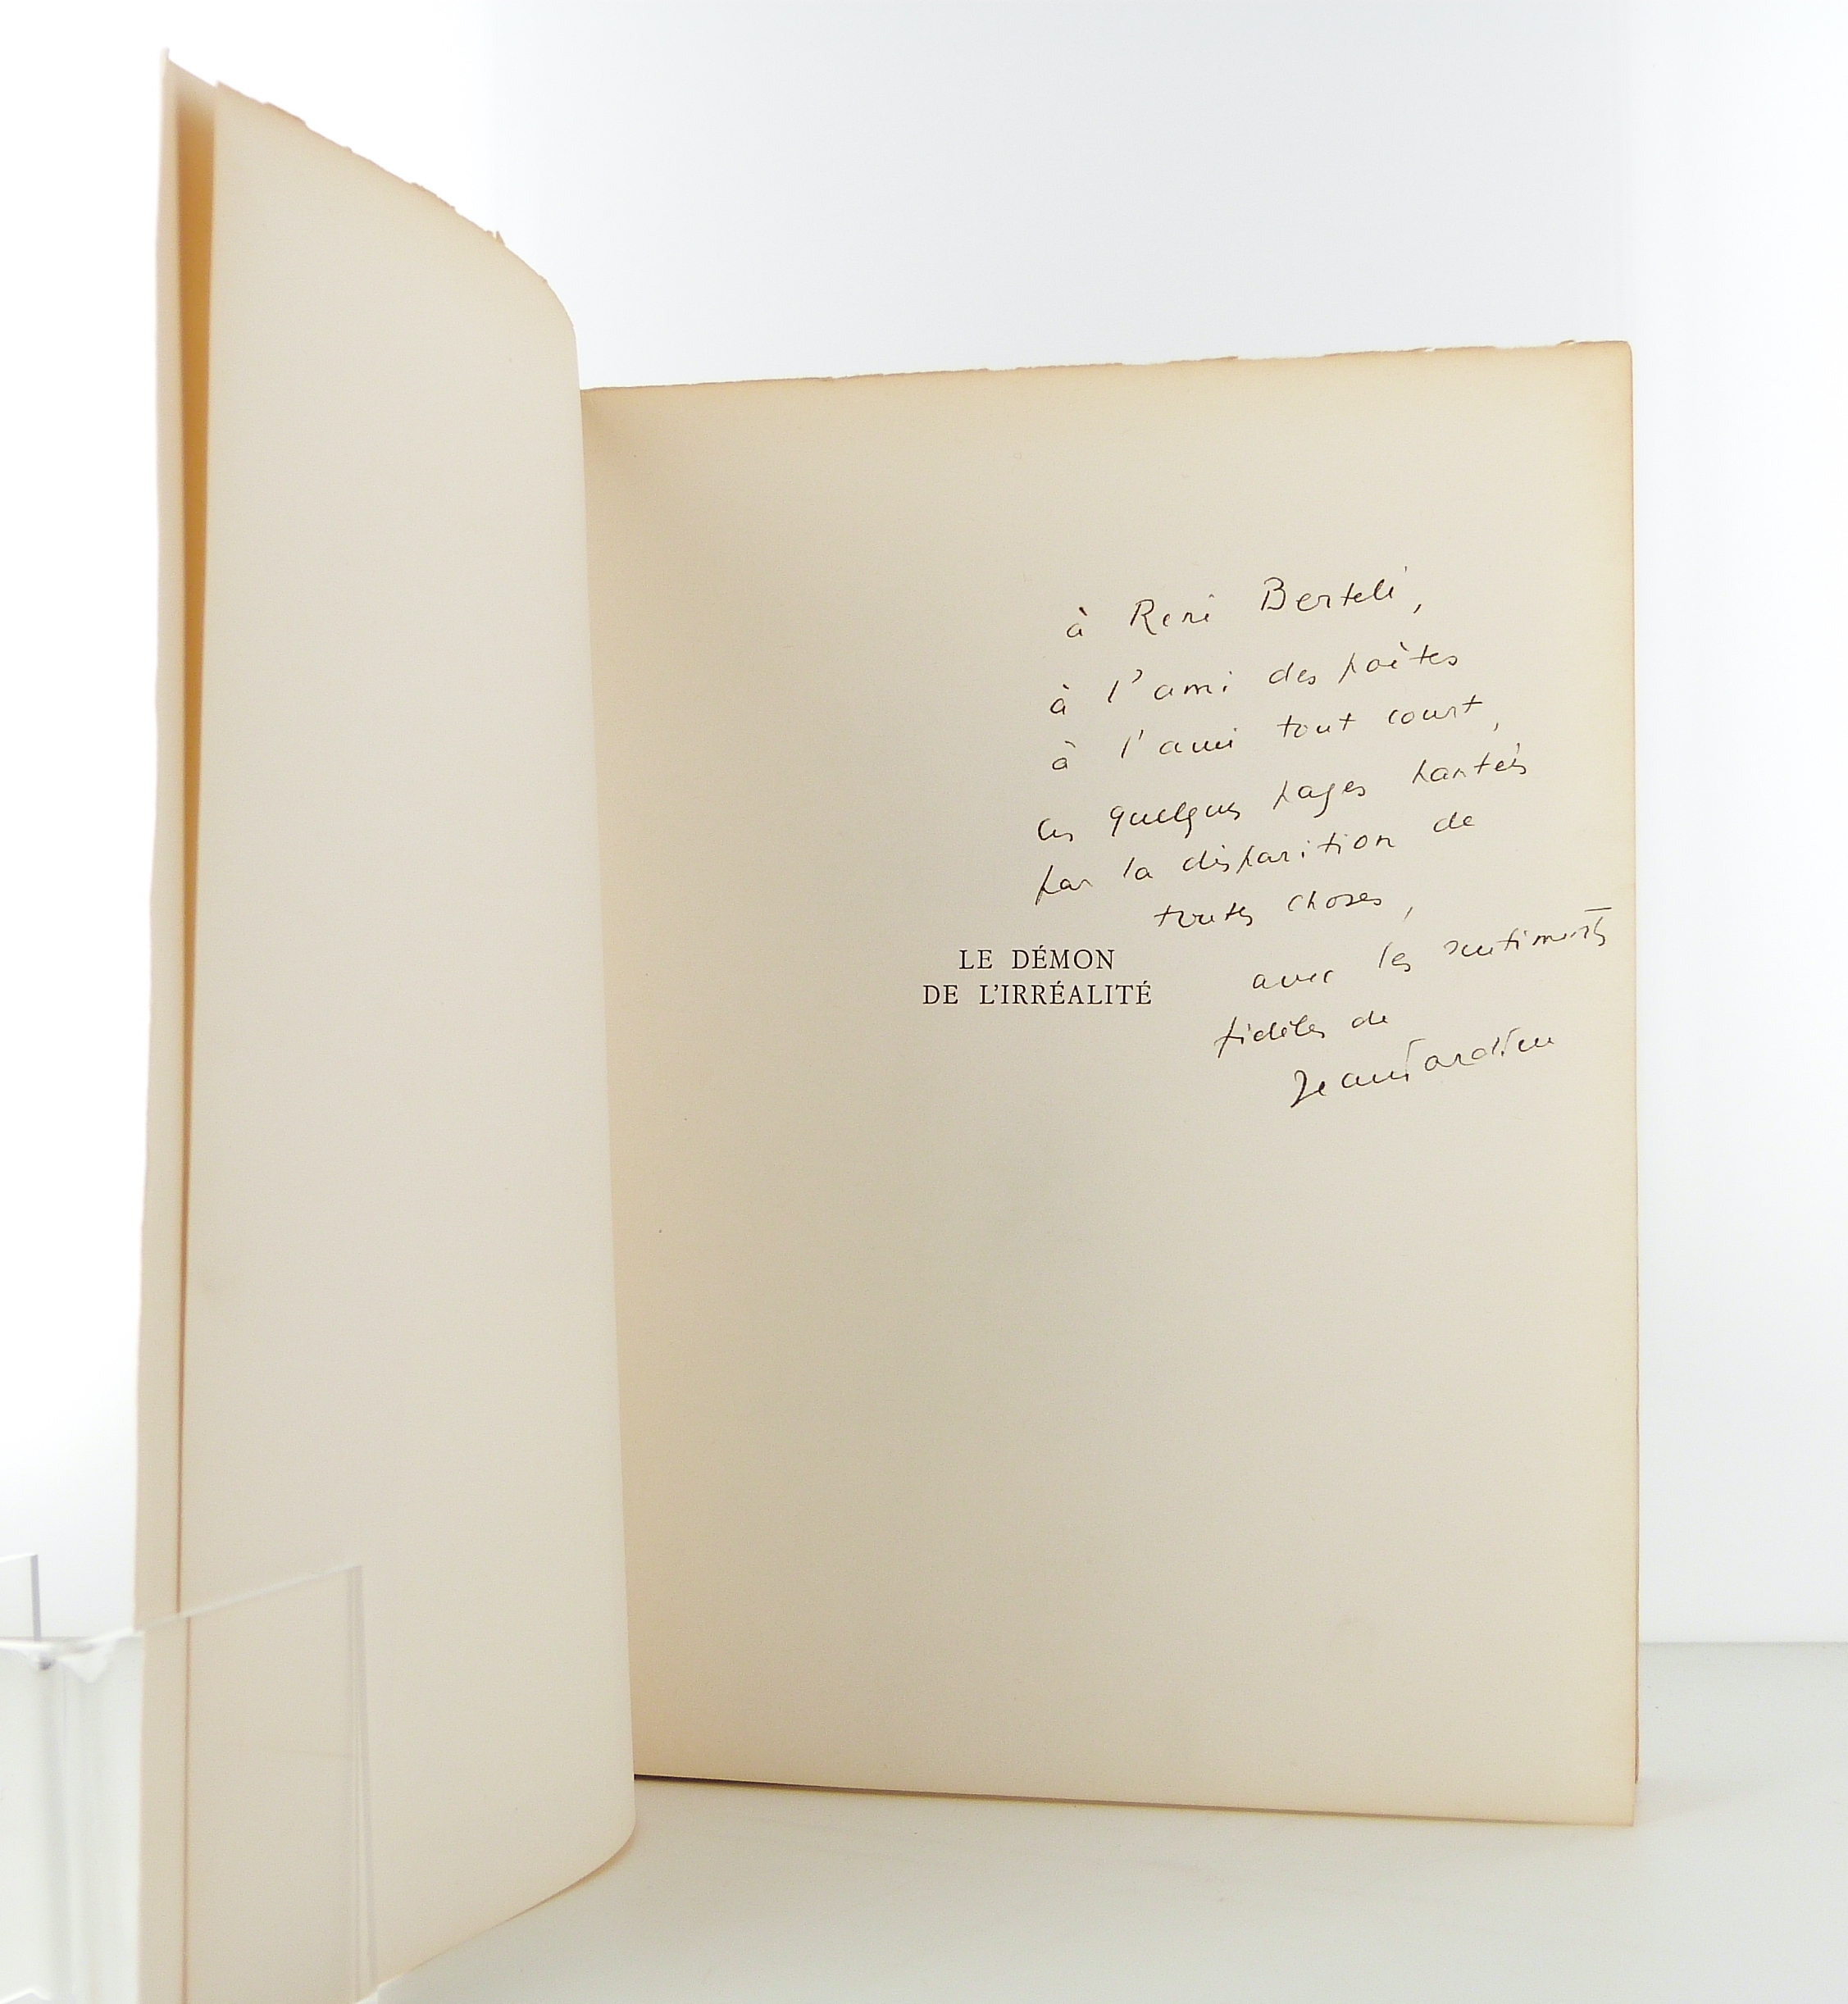 à René Bertelé,
à l'ami des poètes
à l'ami tout court,
ces quelques pages hantées
par la disparition de
toutes choses,
avec les sentiments
fidèles de
Jean Tardieu
LE DÉMON
DE L'IRRÉALITÉ